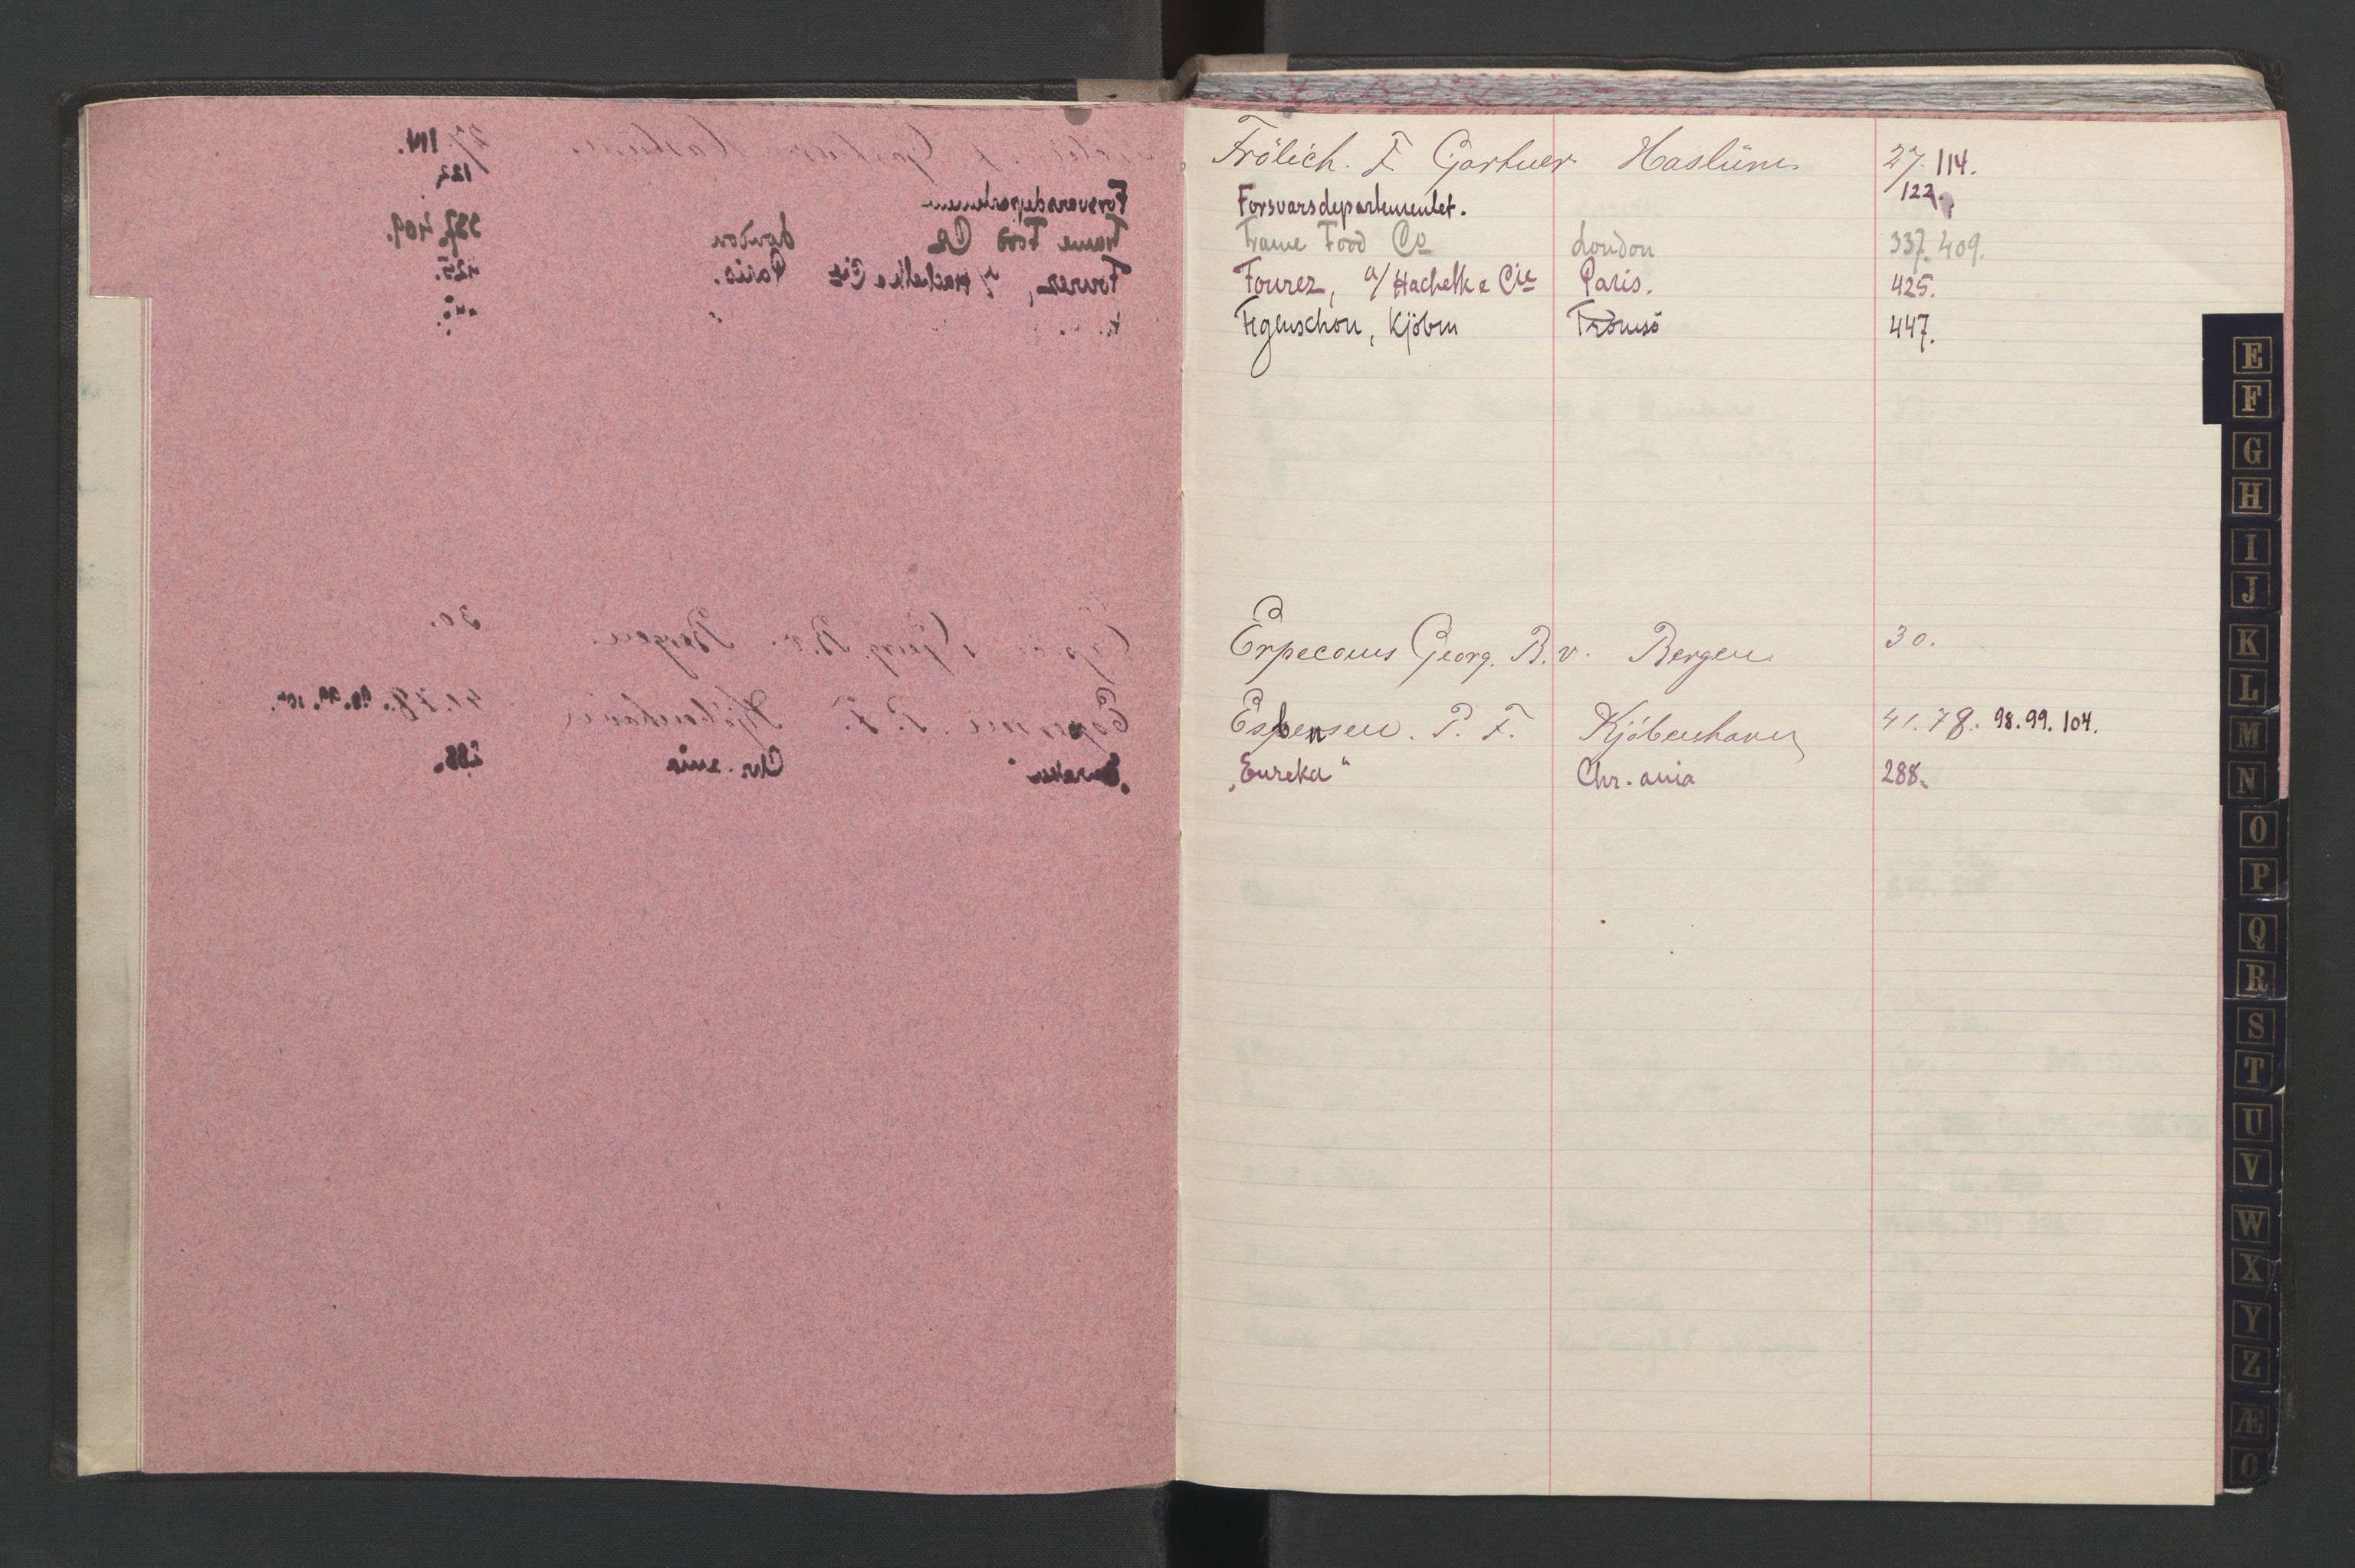 Frölich. F Gartner Haslüm 27. 114.
Forsvarsdepartementet. 122.
Frame Food Co London 337. 409.
Fourez, a/ Hachette & Cie Paris. 425.
Fegenschou, Kjöbm Tromsö 447.
Erpecoms Georg. B. v. Bergen 30.
Espensen. P. F. Kjöbenhavn 41. 78. 98. 99. 104.
„Eureka" Chr. ania 288.
E
F
G
H
I
J
K
L
M
N
O
P
Q
R
S
T
U
V
W
X
Y
Z
Æ
O